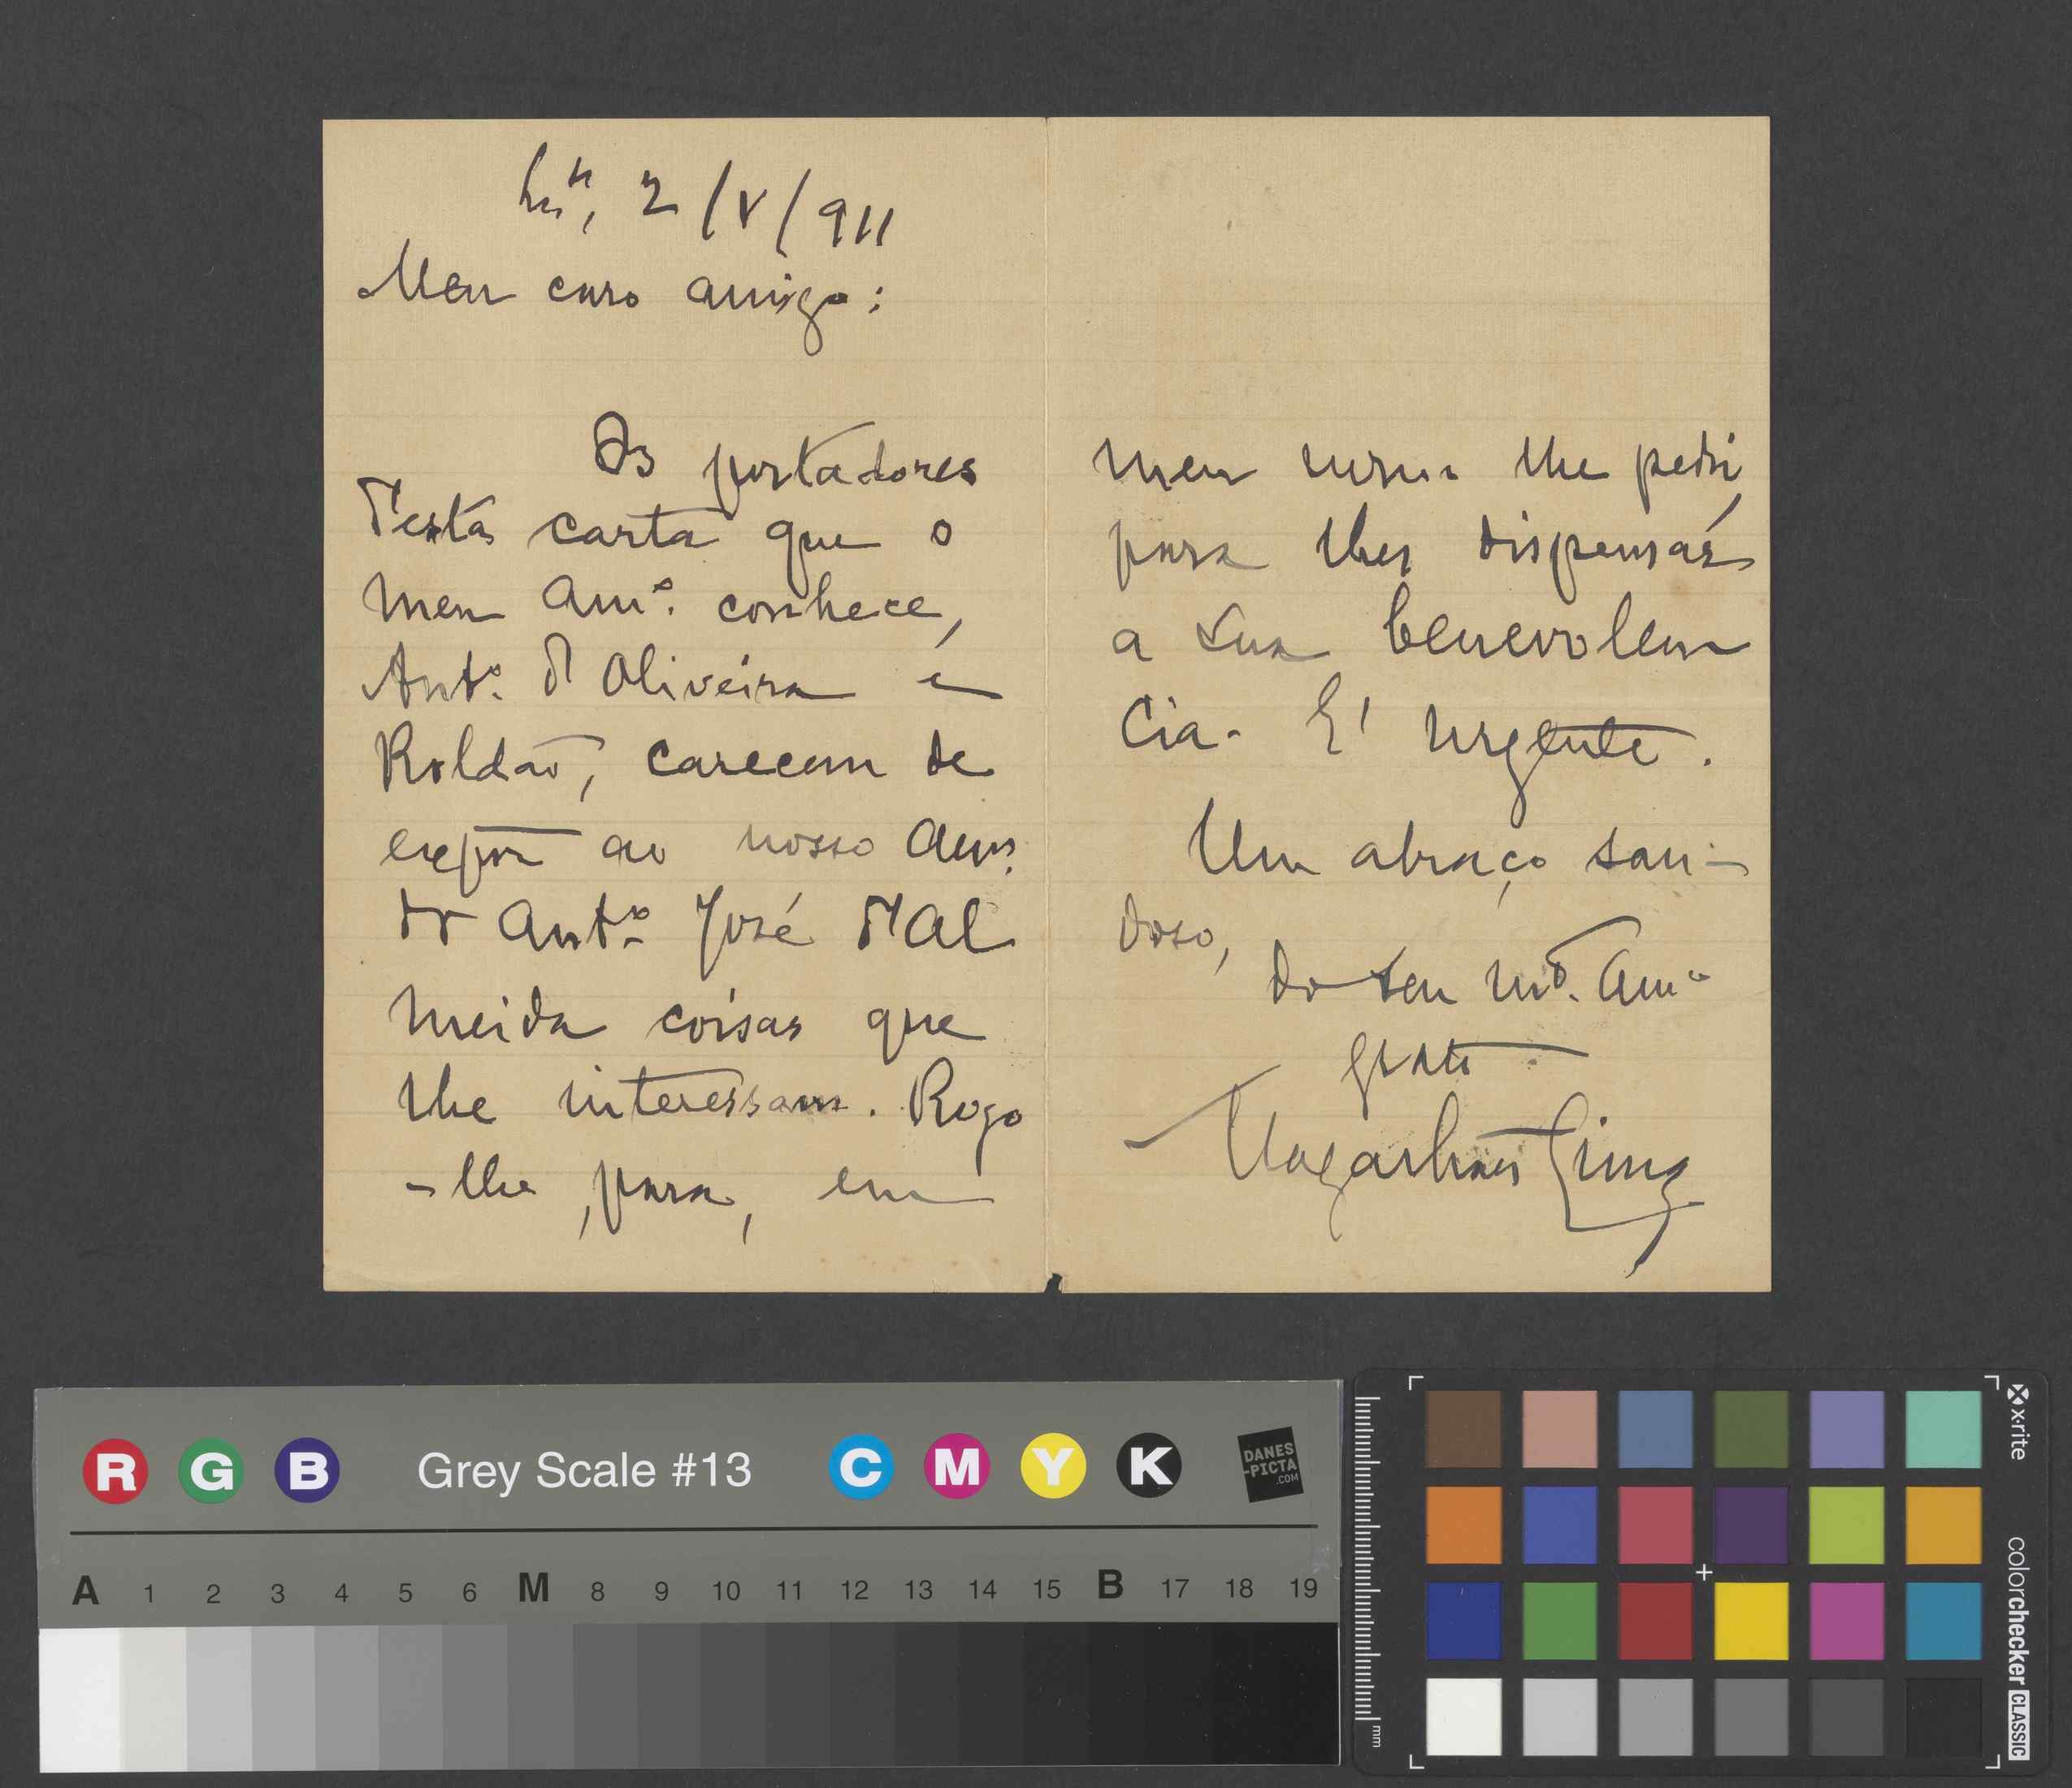 Lxª, 2/V/911
Meu caro amigo:
Os portadores
d'esta carta que o
meu amº. conhece,
Antº. d'Oliveira e
Roldão, carecem de
expor ao nosso amº.
dr Antº José d'Al
meida coisas que
lhe interessam. Rogo
-lhe, para, em
meu nome lhe pedir,
para lhes dispensar
a sua benevolen
cia. E' urgente.
Um abraço sau-
doso,
do seu mtº. amº
grato
Magalhães Lima
R G B Grey Scale #13 C M Y K DANES
-PICTA
.COM
A 1 2 3 4 5 6 M 8 9 10 11 12 13 14 15 B 17 18 19
x-rite
colorchecker CLASSIC
mm